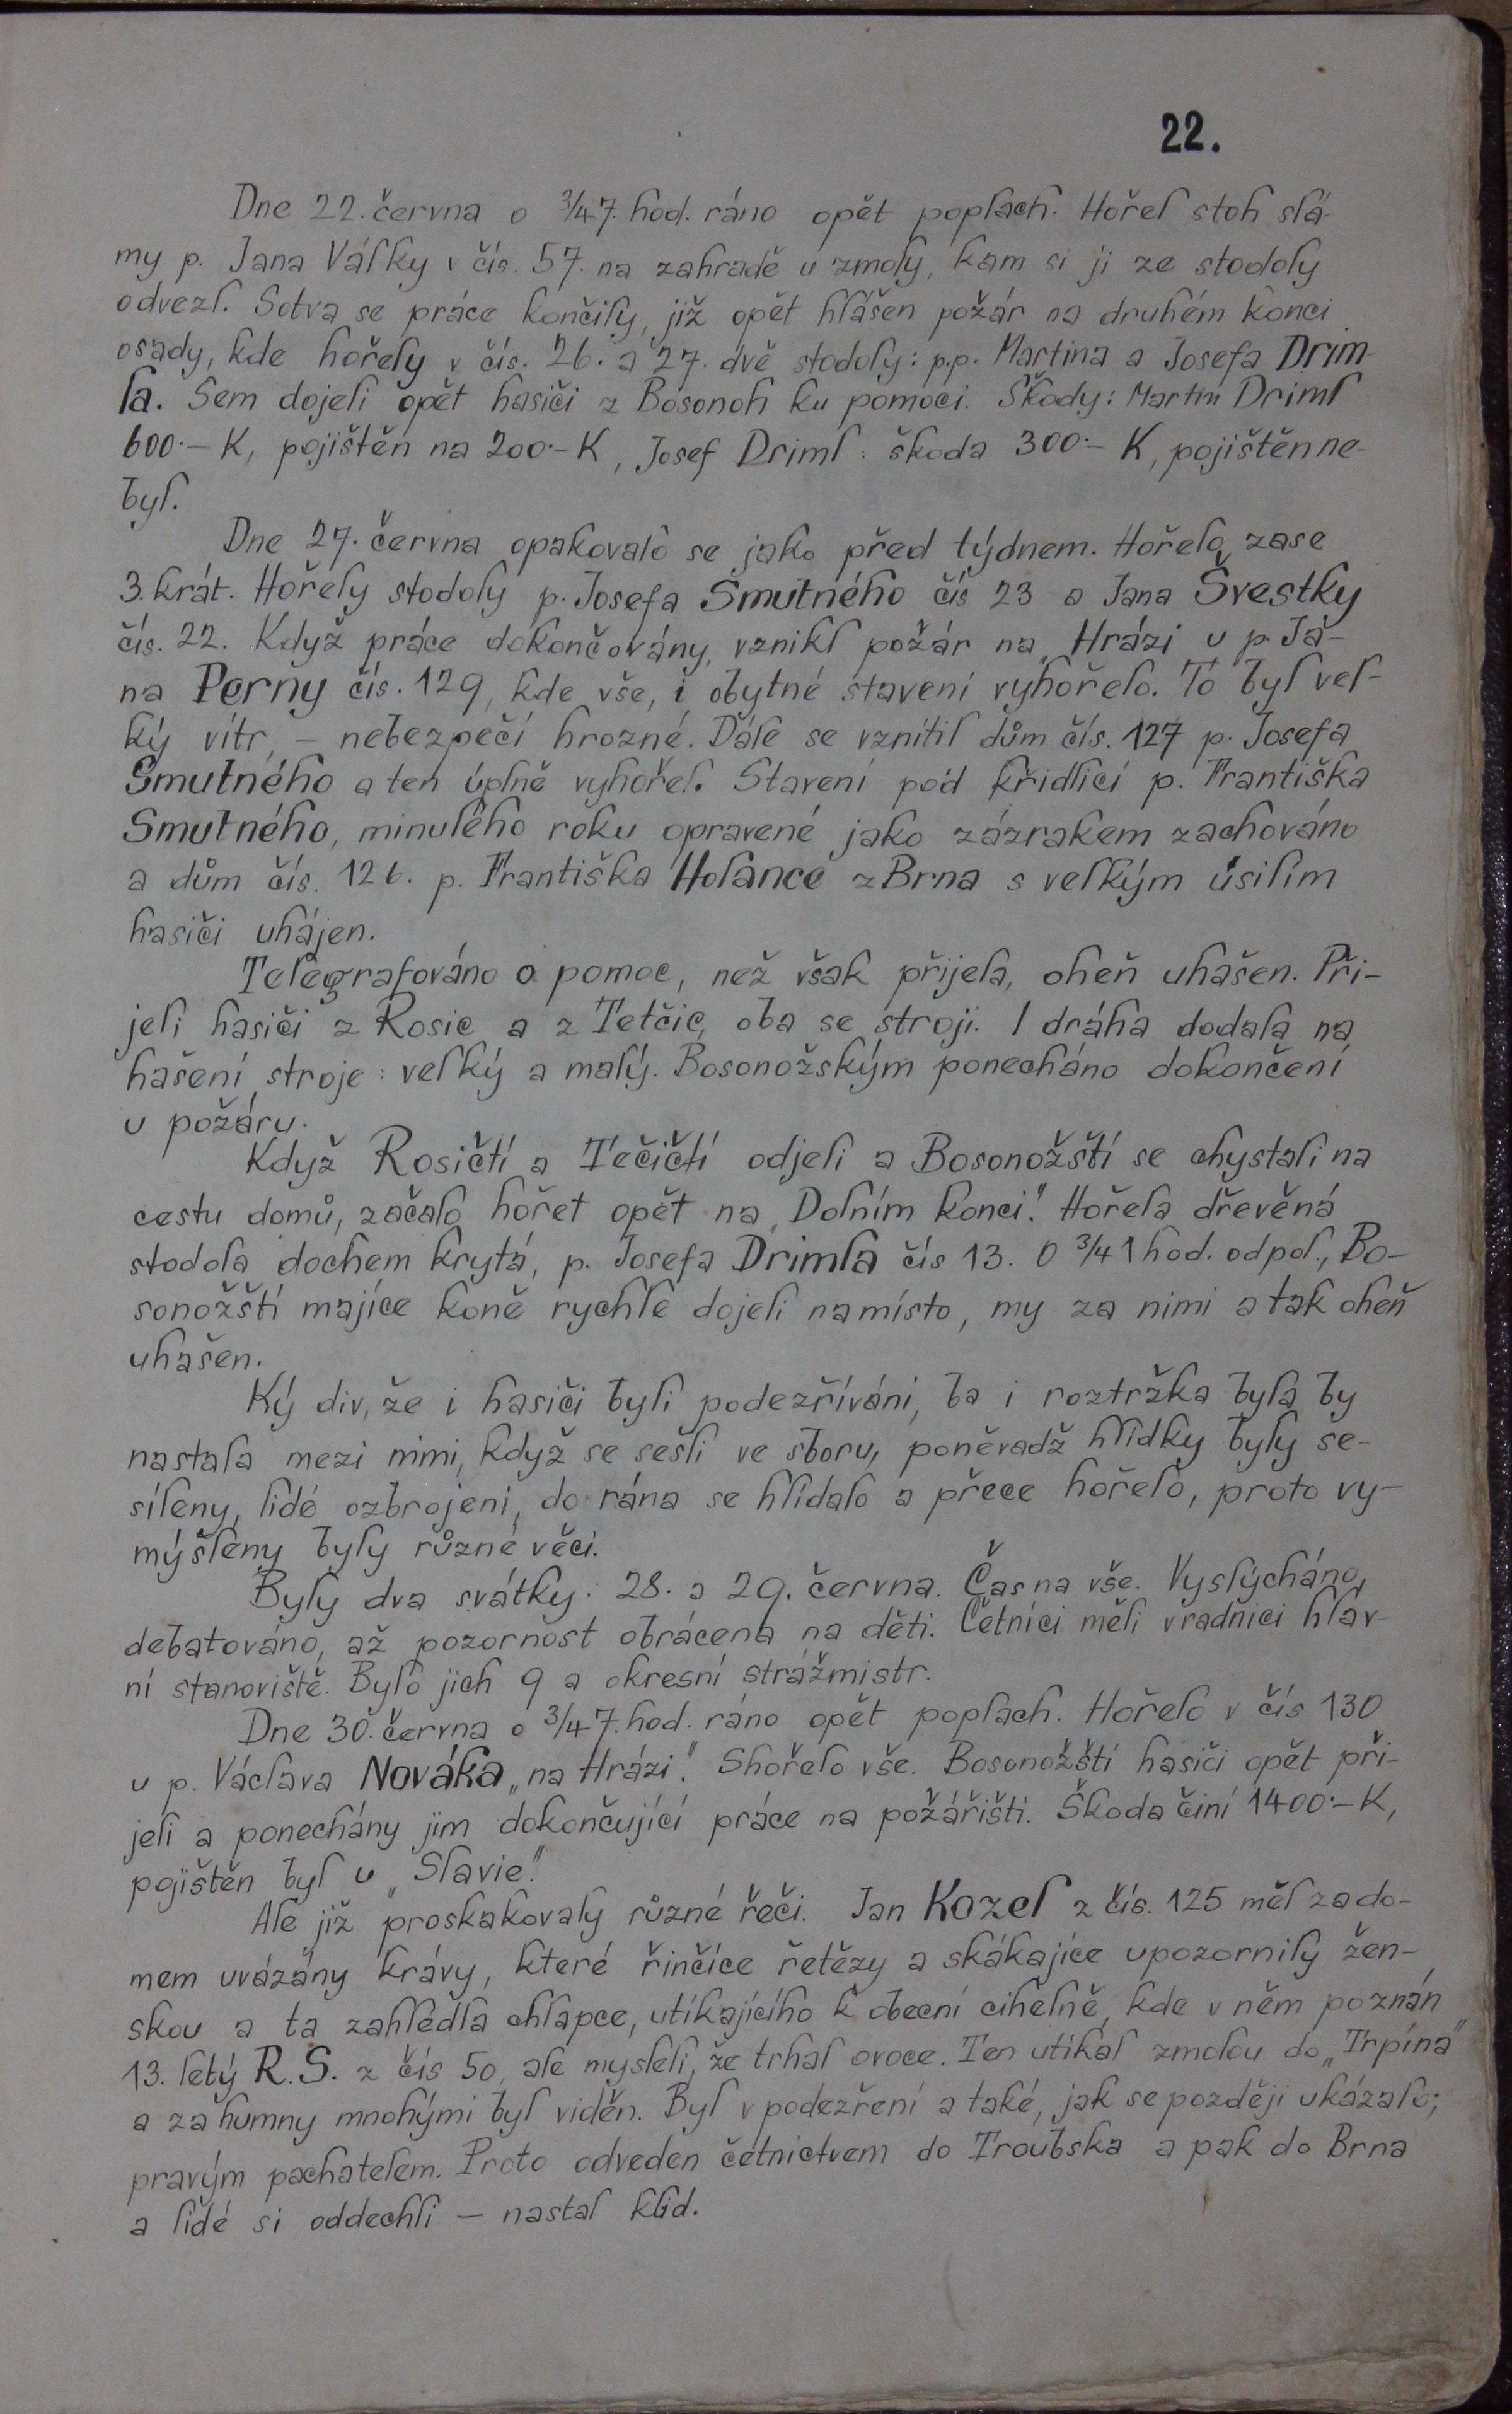 22.
Dne 22. června o 3/47. hod. ráno opět poplach. Hořel stoh slá-
my p. Jana Války v čís. 57. na zahradě u zmoly, kam si ji ze stodoly
odvezl. Sotva se práce končily, již opět hlášen požár na druhém konci
osady, kde hořely v čís. 26. a 27. dvě stodoly: p.p. Martina a Josefa Drim-
la. Sem dojeli opět hasiči z Bosonoh ku pomoci. Škody: Martin Driml
600·- K, pojištěn na 200·- K, Josef Driml: škoda 300·- K, pojištěn ne-
byl.
Dne 27. června opakovalo se jako před týdnem. Hořelo zase
3. krát. Hořely stodoly p. Josefa Smutného čís 23 a Jana Švestky
čís. 22. Když práce dokončovány, vznikl požár na „Hrázi u p. Ja-
na Perny čís. 129, kde vše, i obytné stavení vyhořelo. To byl vel-
ký vítr, - nebezpečí hrozné. Dále se vznítil dům čís. 127 p. Josefa
Smutného a ten úplně vyhořel. Stavení pod křidlicí p. Františka
Smutného, minulého roku opravené jako zázrakem zachováno
a dům čís. 126. p. Františka Holance z Brna s velkým úsilím
hasiči uhájen.
Telegrafováno o pomoc, než však přijela, oheň uhašen. Při-
jeli hasiči z Rosic a z Tetčic, oba se stroji. I dráha dodala na
hašení stroje: velký a malý. Bosonožským ponecháno dokončení
u požáru.
Když Rosičtí a Tečičtí odjeli a Bosonožští se chystali na
cestu domů, začalo hořet opět na „Dolním konci". Hořela dřevěná
stodola dochem krytá, p. Josefa Drimla čís 13. O 3/41 hod. odpol., Bo-
sonožští majíce koně rychle dojeli na místo, my za nimi a tak oheň
uhašen.
Ký div, že i hasiči byli podezříváni, ba i roztržka byla by
nastala mezi nimi, když se sešli ve sboru, poněvadž hlídky byly se-
síleny, lidé ozbrojeni, do rána se hlídalo a přece hořelo, proto vy-
mýšleny byly různé věci.
Byly dva svátky: 28. a 29. června. Čas na vše. Vyslýcháno,
debatováno, až pozornost obrácena na děti. Četníci měli v radnici hlav-
ní stanoviště. Bylo jich 9 a okresní strážmistr.
Dne 30. června o 3/47. hod. ráno opět poplach. Hořelo v čís 130
u p. Václava Nováka „na Hrázi". Shořelo vše. Bosonožští hasiči opět při-
jeli a ponechány jim dokončující práce na požářišti. Škoda činí 1400·- K,
pojištěn byl u „Slavie".
Ale již proskakovaly různé řeči. Jan Kozel z čís. 125 měl za do-
mem uvázány krávy, které řinčíce řetězy a skákajíce upozornily žen-
skou a ta zahlédla chlapce, utíkajícího k obecní cihelně, kde v něm poznán
13. letý R. S. z čís 50, ale mysleli, že trhal ovoce. Ten utíkal zmolou do „Trpína"
a za humny mnohými byl viděn. Byl v podezření a také, jak se později ukázalo;
pravým pachatelem. Proto odveden četnictvem do Troubska a pak do Brna
a lidé si oddechli - nastal klid.